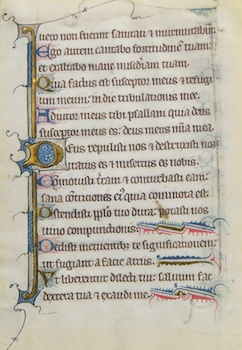 uero non fuerint saturati et murmurabūt.
Ego autem cantabo fortitudinē tuam:
et exaltabo mane misc̄diam tuam.
Quia factus es susceptor meus et refugi
um meum: in die tribulationis mee.
Adiutor meus tibi psallam quia deus
susceptor meus es: deus meus mīa mea.
Deus repulisti nos et destruxisti nos
iratus es et misertus es nobis.
Commouisti t̄ram et conturbasti eam:
sana cōtriciones ei' q̄ commota est.
Ostendisti pp̄lo tuo dura: potasti nos
uino compunctionis.
Dedisti metuentibꝫ te significationem:
ut fugiant a facie arcus.
Ut liberentur dilecti tui: saluum fac
dextera tua et exaudi me.